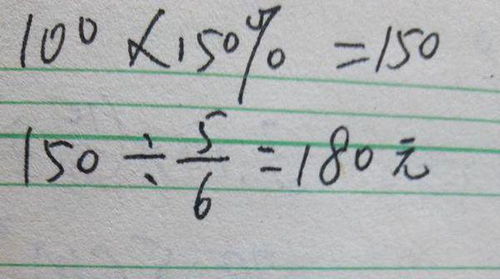 100×150%=150
150÷5/6=180元